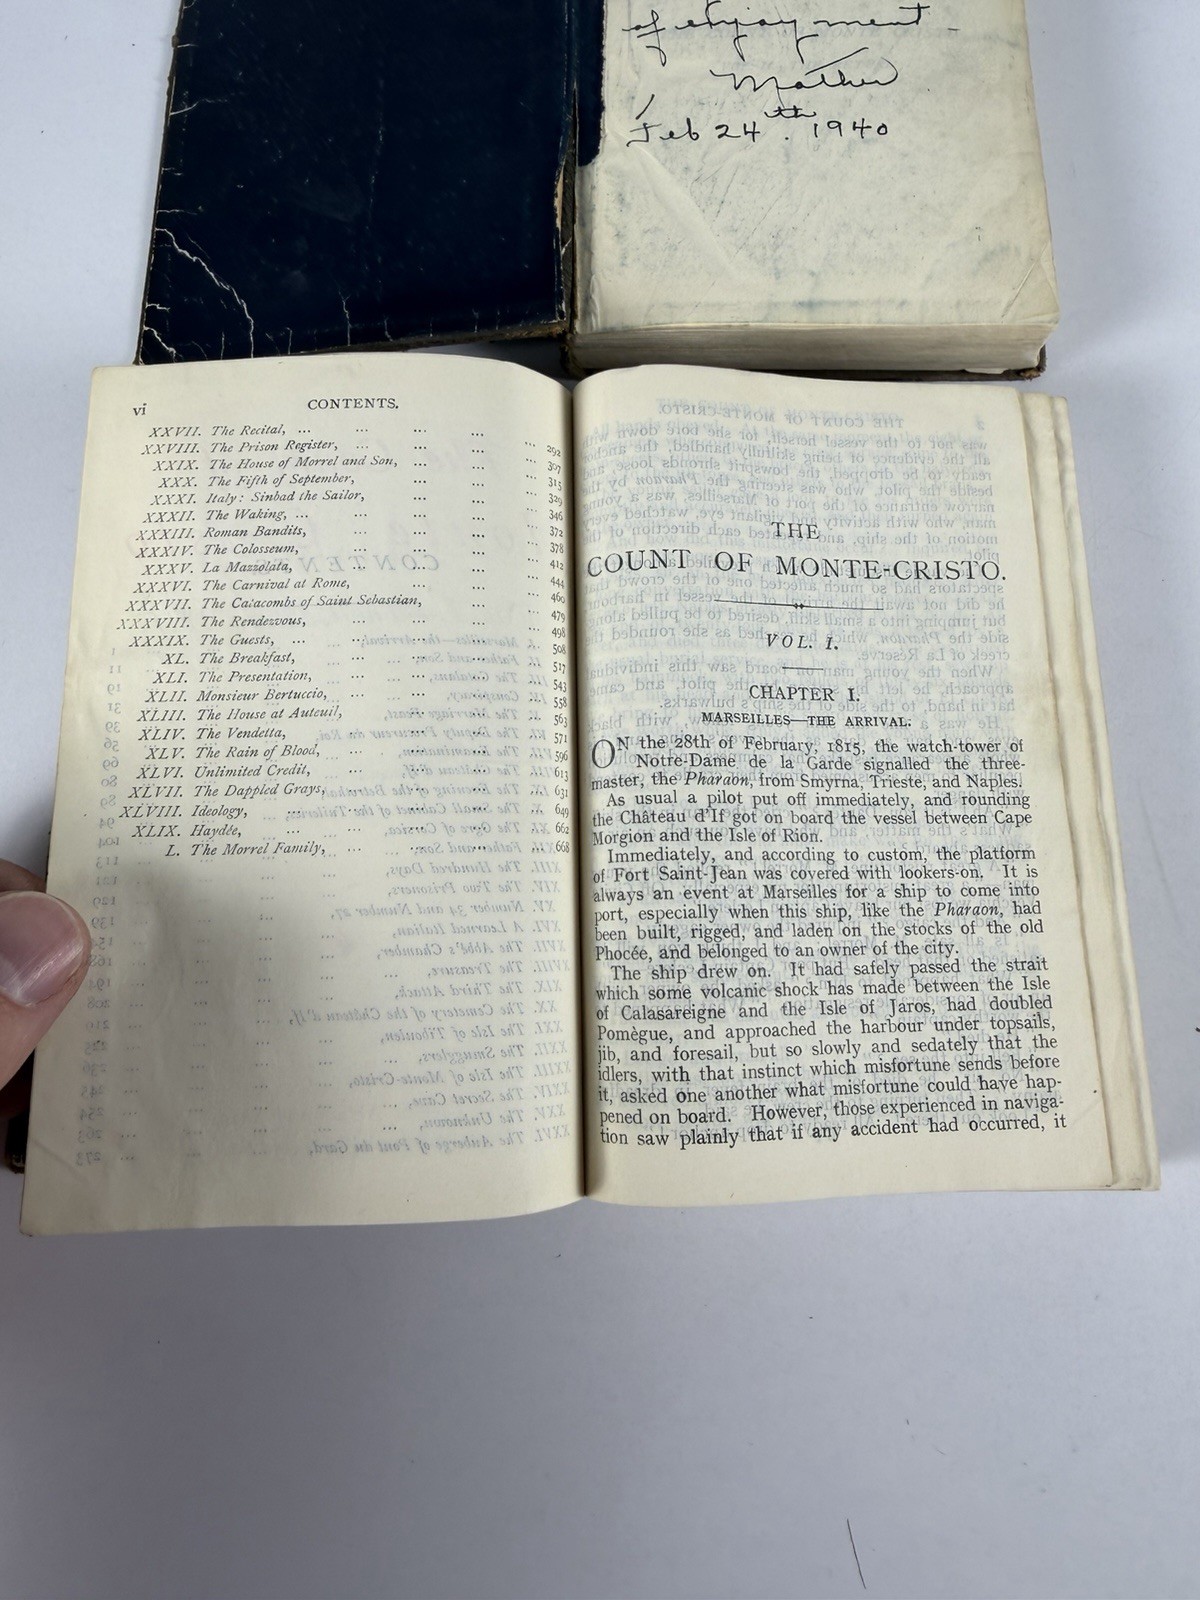 of enjoyment -
Mother
Feb 24th. 1940
vi CONTENTS.
XXVII. The Recital, ... ... ... ... 292
XXVIII. The Prison Register, ... ... ... 307
XXIX. The House of Morrel and Son, ... ... ... 315
XXX. The Fifth of September, ... ... ... 329
XXXI. Italy: Sinbad the Sailor, ... ... ... 346
XXXII. The Waking, ... ... ... ... 372
XXXIII. Roman Bandits, ... ... ... ... 378
XXXIV. The Colosseum, ... ... ... ... 412
XXXV. La Mazzolata, ... ... ... ... 444
XXXVI. The Carnival at Rome, ... ... ... 460
XXXVII. The Catacombs of Saint Sebastian, ... ... 479
XXXVIII. The Rendezvous, ... ... ... ... 498
XXXIX. The Guests, ... ... ... ... 508
XL. The Breakfast, ... ... ... ... 517
XLI. The Presentation, ... ... ... ... 543
XLII. Monsieur Bertuccio, ... ... ... ... 558
XLIII. The House at Auteuil, ... ... ... 563
XLIV. The Vendetta, ... ... ... ... 571
XLV. The Rain of Blood, ... ... ... ... 596
XLVI. Unlimited Credit, ... ... ... ... 613
XLVII. The Dappled Grays, ... ... ... ... 631
XLVIII. Ideology, ... ... ... ... 649
XLIX. Haydée, ... ... ... ... 662
L. The Morrel Family, ... ... ... ... 668
THE
COUNT OF MONTE-CRISTO.
VOL. I.
CHAPTER I.
MARSEILLES—THE ARRIVAL.
ON the 28th of February, 1815, the watch-tower of
Notre-Dame de la Garde signalled the three-
master, the Pharaon, from Smyrna, Trieste, and Naples.
As usual a pilot put off immediately, and rounding
the Château d'If got on board the vessel between Cape
Morgion and the Isle of Rion.
Immediately, and according to custom, the platform
of Fort Saint-Jean was covered with lookers-on. It is
always an event at Marseilles for a ship to come into
port, especially when this ship, like the Pharaon, had
been built, rigged, and laden on the stocks of the old
Phocée, and belonged to an owner of the city.
The ship drew on. It had safely passed the strait
which some volcanic shock has made between the Isle
of Calasareigne and the Isle of Jaros, had doubled
Pomègue, and approached the harbour under topsails,
jib, and foresail, but so slowly and sedately that the
idlers, with that instinct which misfortune sends before
it, asked one another what misfortune could have hap-
pened on board. However, those experienced in naviga-
tion saw plainly that if any accident had occurred, it